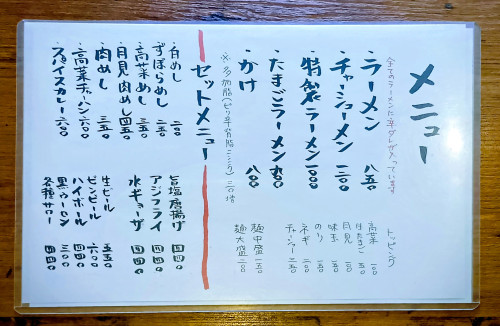 メニュー
全てのラーメンに辛ダレが入っています
・ラーメン 八五〇
・チャーシューメン
・特製ラーメン
・たまごラーメン 九〇〇
・かけ 八〇〇
トッピング
高菜 一〇〇
生たまご 五〇
月見
味玉
のり 一〇〇
ネギ
チャーシュー
麺中盛 一五〇
麺大盛
セットメニュー
・白めし
・ずぼらめし
・高菜めし 三五〇
・月見肉めし 四五〇
・肉めし 三五〇
・高菜チャーハン 六〇〇
・スパイスカレー 六〇〇
旨塩唐揚げ 四四〇
アジフライ 四四〇
水ギョーザ 四四〇
生ビール 五五〇
ビンビール 六〇〇
ハイボール 四四〇
黒ウーロン 三〇〇
各種サワー 四四〇